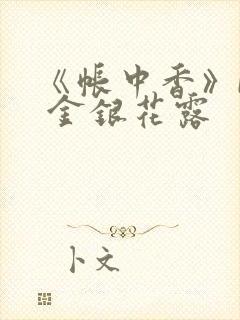 《帐中香》
金银花露
卜文